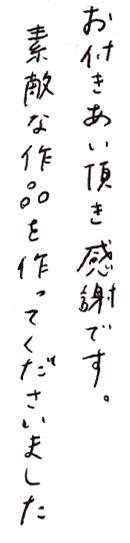 お付きあい頂き感謝です。
素敵な作品を作ってくださいました